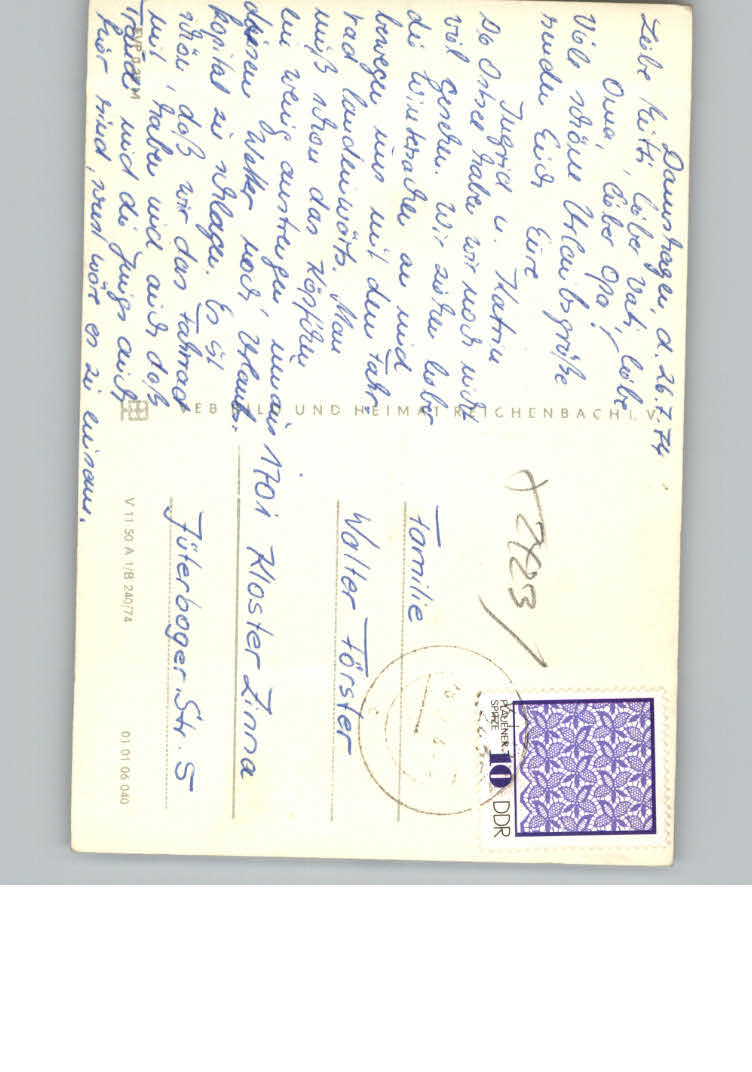 Damshagen, d. 26.7.74
Liebe Mutti, lieber Vati, liebe
Oma, lieber Opa!
Viele schöne Urlaubsgrüße
senden Euch Eure
Ingrid u. Katrin
Die Ostsee haben wir noch nicht
viel gesehen. Wir ziehen lieber
die Wintersachen an und
bewegen uns mit dem Fahr-
rad landeinwärts. Man
muß schon das Köpfchen
ein wenig anstrengen, um aus
diesem Wetter noch Urlaubs-
kapital zu schlagen. Es ist
schön, daß wir das Fahrrad
mit haben und auch daß
Traude und die Jungs auch
hier sind, sonst wär es zu einsam.
EVP 0,20 M
VEB BILD UND HEIMAT REICHENBACH I. V.
V 11 50 A 1/B 240/74
01 01 06 040
Familie
Walter Förster
1701 Kloster Zinna
Jüterboger Str. 5
PLAUENER
SPITZE
10 DDR